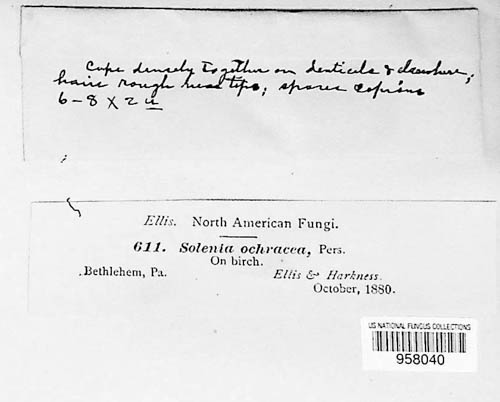 Cups densely together on denticels & elsewhere;
hairs rough near tips; spores copious
6-8 X 2 u
Ellis. North American Fungi.
611. Solenia ochracea, Pers.
On birch.
Bethlehem, Pa. Ellis & Harkness.
October, 1880.
US NATIONAL FUNGUS COLLECTIONS
958040